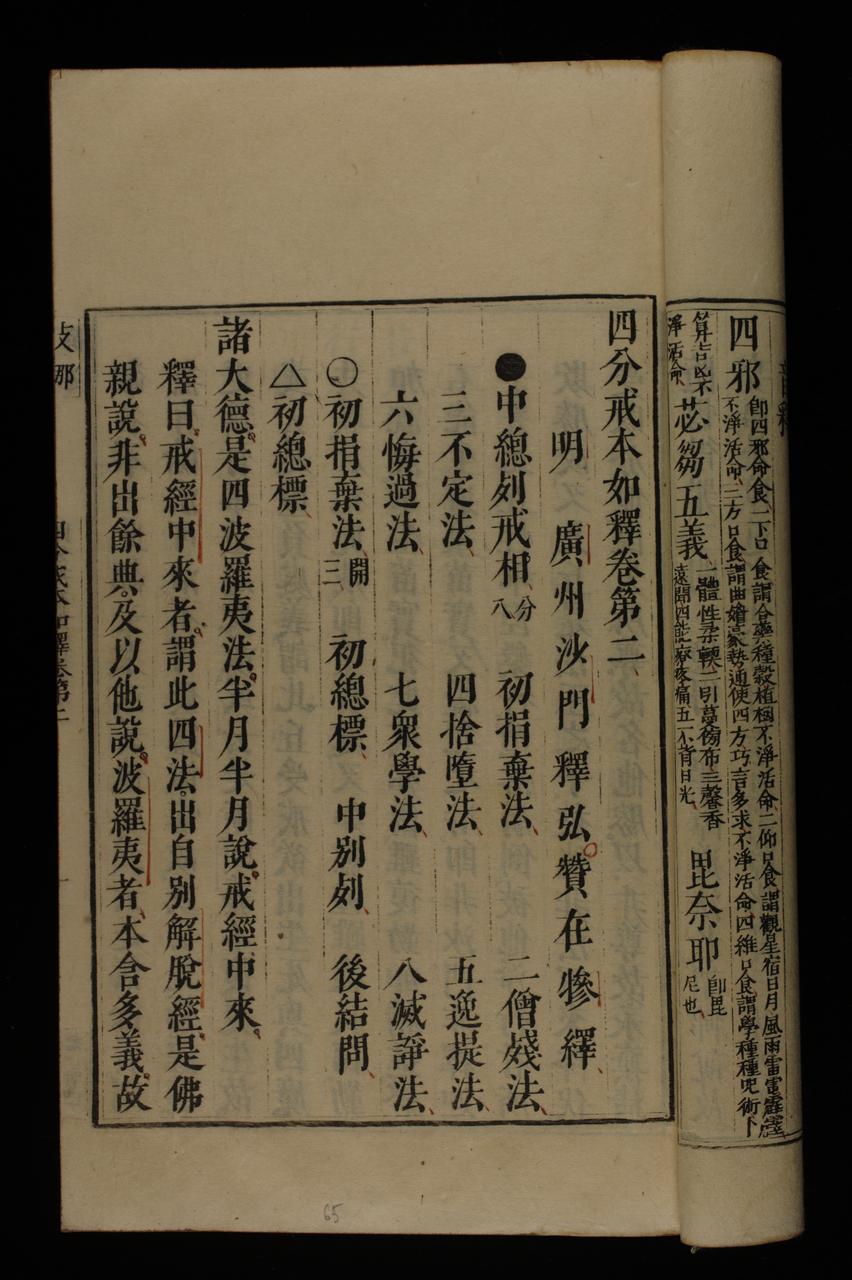 四邪即四邪命食一下口食謂合藥種穀植樹不淨活命二仰口食謂觀星宿日月風雨雷電霹靂
不淨活命三方口食謂曲媚豪勢通使四方巧言多求不淨活命四維口食謂學種種呪術卜
算吉凶不淨活命 苾芻五義一體性柔輭二引蔓徬布三馨香遠聞四能療疼痛五不背日光 毘奈耶即毘尼也
四分戒本如釋卷第二
明 廣州沙門釋弘贊在犙繹
●中總列戒相分八 初指棄法 二僧殘法
三不定法 四捨墮法 五逸提法
六悔過法 七衆學法 八滅諍法
○初指棄法開三 初總標 中別列 後結問
△初總標
諸大德是四波羅夷法半月半月說戒經中來
釋曰戒經中來者謂此四法出自別解脫經是佛
親說非出餘典及以他說波羅夷者本含多義故
四分戒本如釋卷第二
一
65